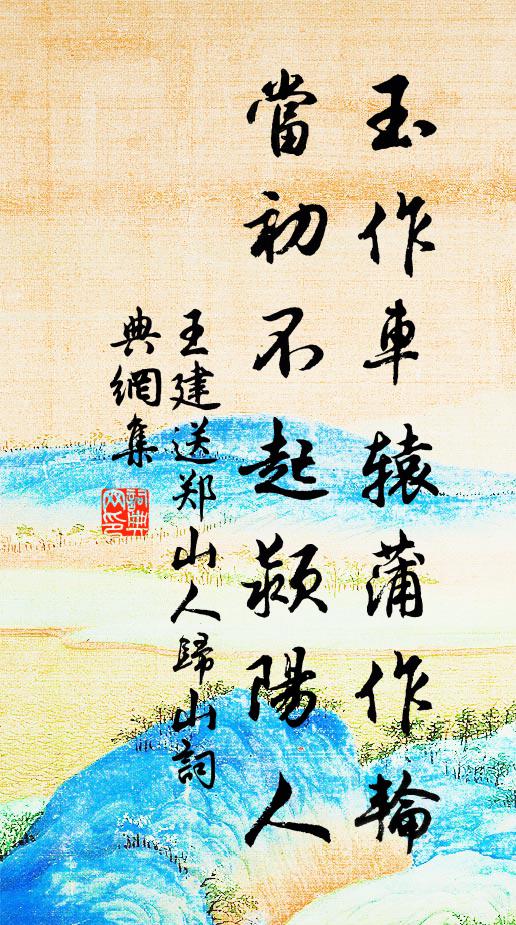 玉作車辕蒲作輪
當初不起颍陽人
王建送郑山人歸山詞
典網集
詞典網印